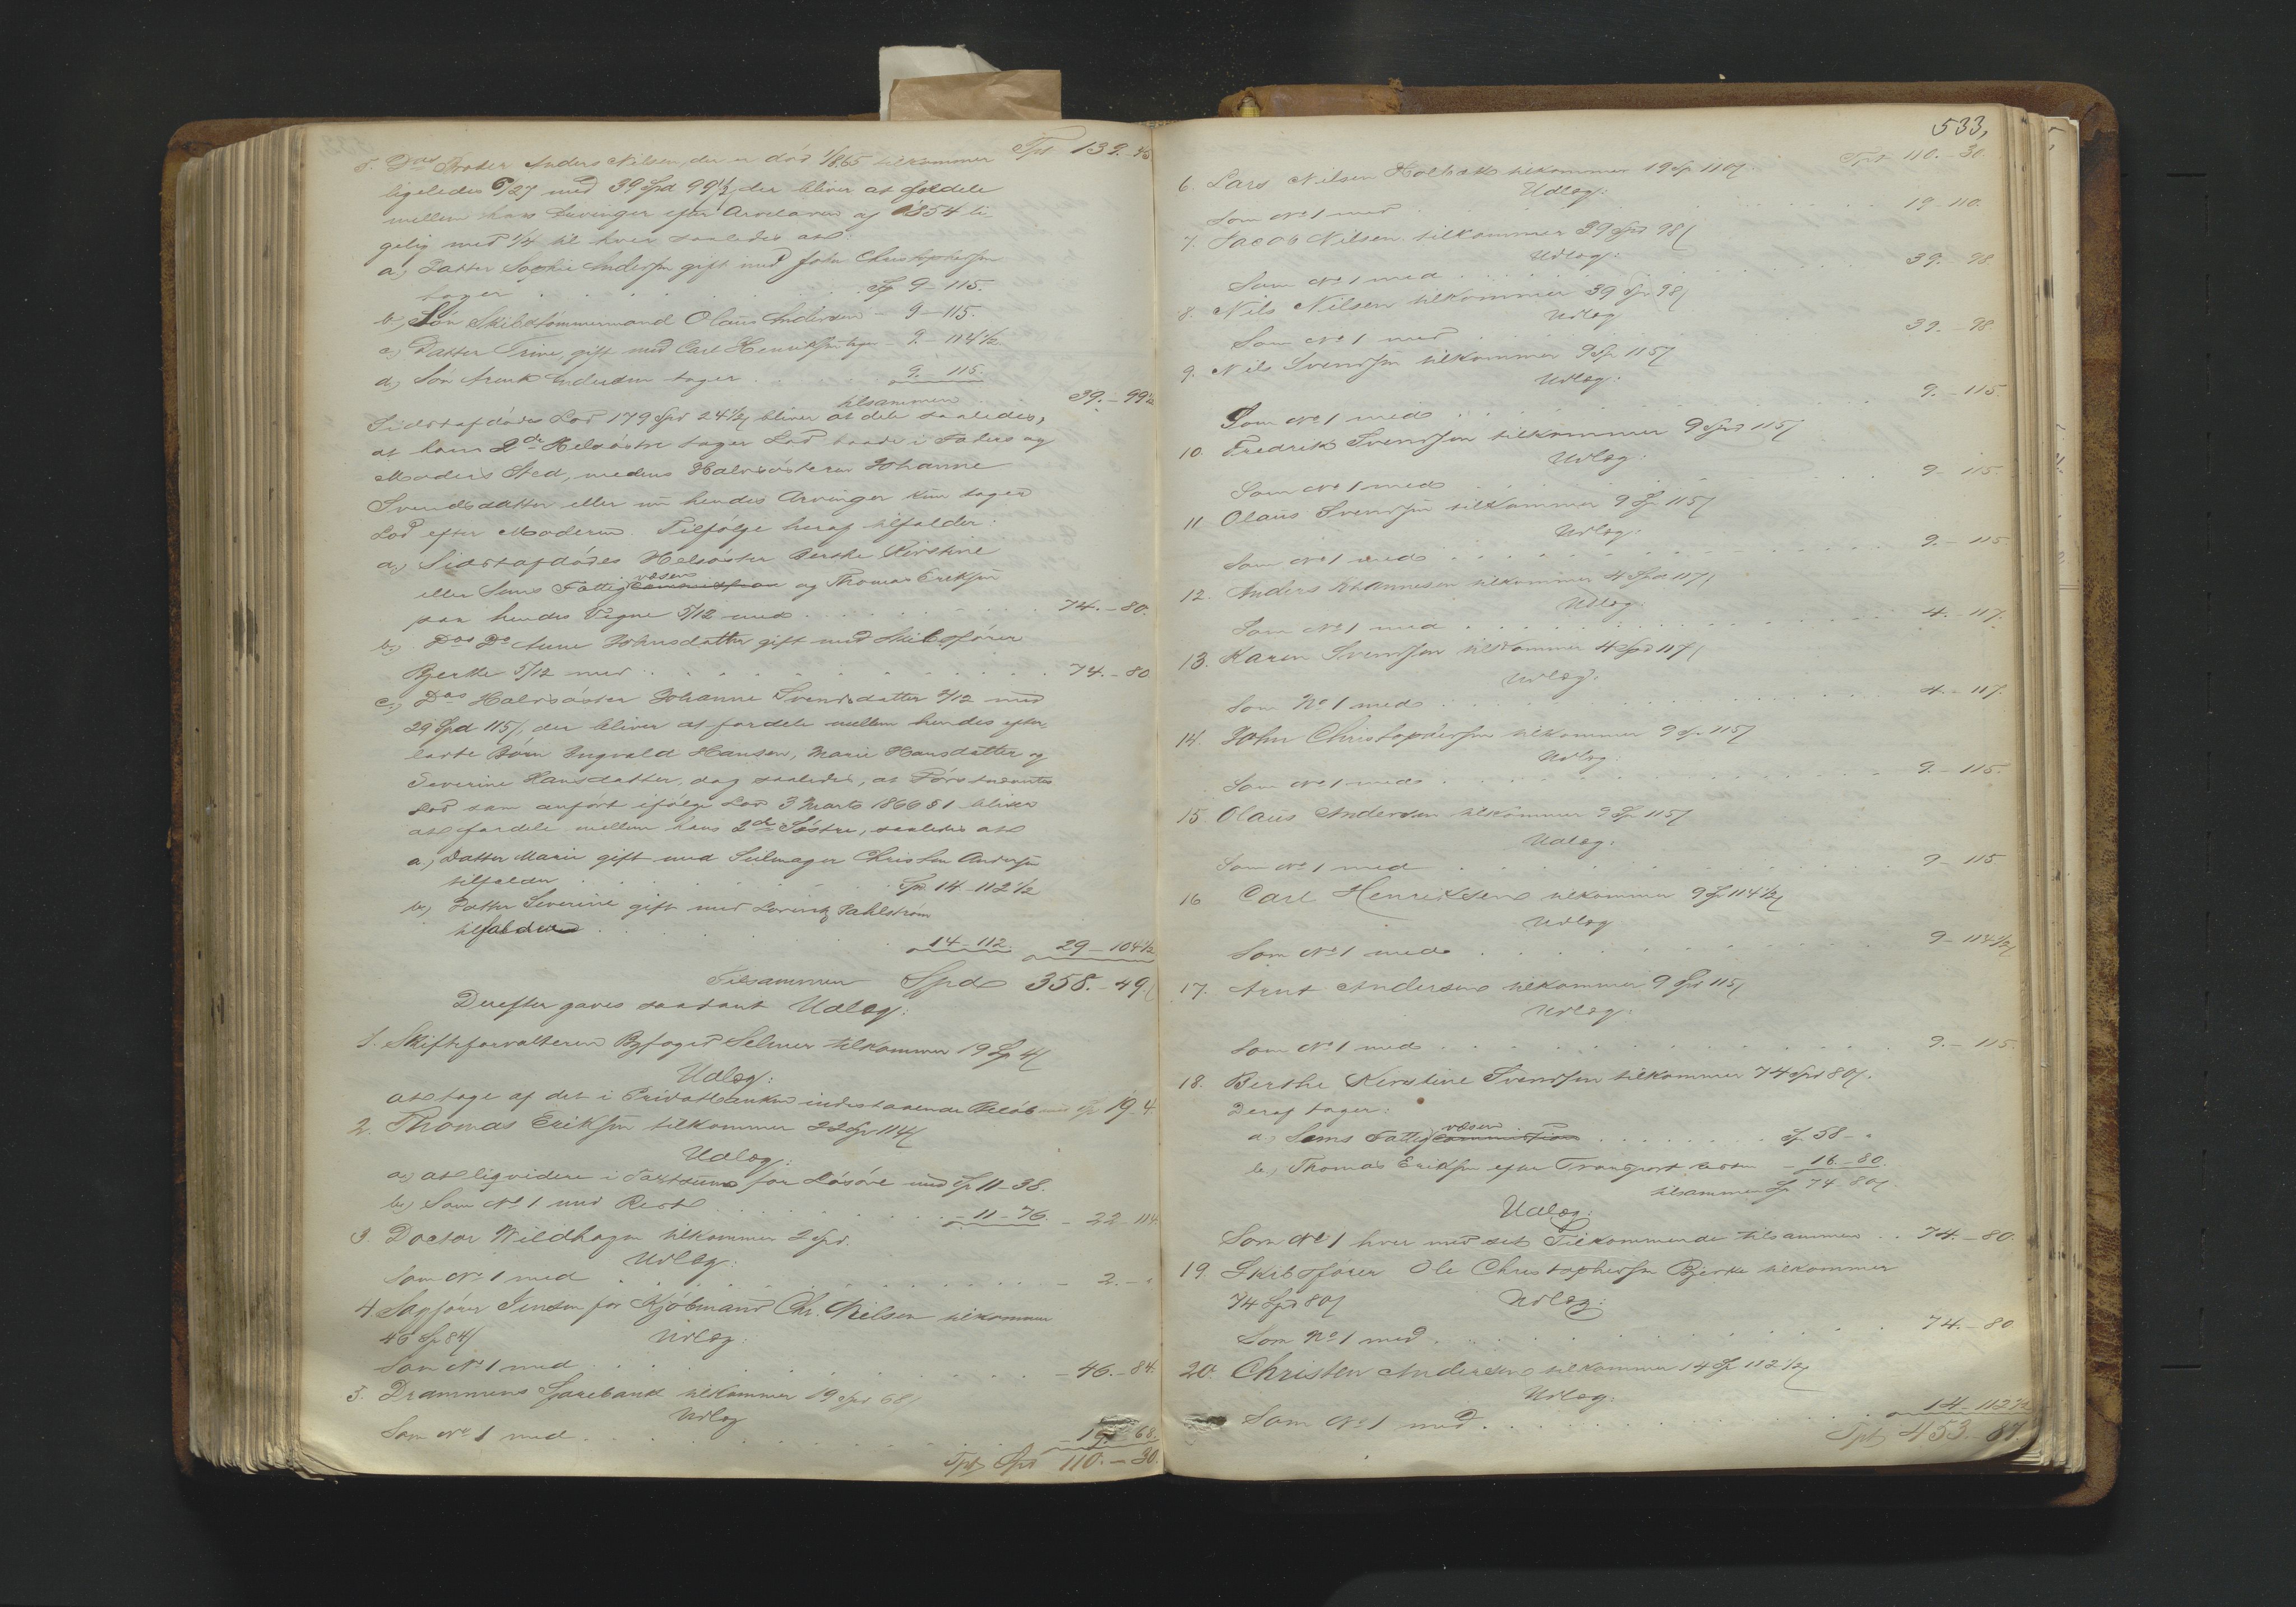 Tpt 139.-45
5. Das Broder Anders Nilsen, der er død 1/865 tilkommer
ligeledes 6/27 med 39 Spd 99½, der bliver at fordele
mellem hans Livinger efter Arveloven af 1854 li-
gelig med ¼ til hver saaledes at:
a) Datter Sophie Andersen gift med John Christophersen
tager . . . Sp 9-115.
b) Søn Skibstømmermand Olaus Andersen - 9-115.
c) Datter Trine, gift med Carl Henriksen tager - 9-114½
d) Søn Arent Andersen tager . . . 9-115.
tilsammen . . . 39.-99½
Sidstafdødes Lod 179 Spd 24½ bliver at dele saaledes,
at hans 2de Helsøstre tager Lod baade i Faders og
Moders Sted, medens Halvsøsteren Johanne
Svendsdatter eller nu hendes Arvinger kun tager
Lod efter Moderen. Tilfølge heraf tilfalder:
a) Sidstafdødes Helsøster Berthe Kirstine
eller Sems Fattigvæsen og Thomas Eriksen
paa hendes Vegne 5/12 med . . . 74.-80.
b) Das Do Anne Johnsdatter gift med Skibsfører
Bjerke 5/12 med . . . 74.-80
c) Das Halvsøster Johanne Svendsdatter 2/12 med
29 Spd 115/, der bliver at fordele mellem hendes efter-
ladte Børn Ingvald Hansen, Marie Hansdatter og
Severine Hansdatter, dog saaledes, at Førstnævntes
Lod som anført ifølge Lov 3 Marts 1866 § 1 bliver
at fordele mellem hans 2de Søstre, saaledes at
a) Datter Marie gift med Seilmager Christen Andersen
tilfalder . . . Spd 14-112½
b) Datter Severine gift med Lorentz Dahlstrøm
tilfalder . . . 14-112. 29-104½
Tilsammen Spd 358.-49/
Derefter gaves saadant Udlæg:
1. Skifteforvalteren Byfoged Selmer tilkommer 19 Sp 4/
Udlæg:
at tage af det i Privatbanken indestaaende Beløb med Sp 19-4.
2. Thomas Eriksen tilkommer 22 Sp 114/
Udlæg:
a) at liqvidere i Fartsum for Løsøre med Sp 11-38.
b) Som No 1 med Rest . . . - 11-76. - 22-114.
3. Doctor Wildhagen tilkommer 2 Spd.
Udlæg:
Som No 1 med . . . - 2.-"
4 Sagfører Jensen for Kjøbmand Chr. Nielsen tilkommer
46 Sp 84/ Udlæg:
Som No 1 med . . . - 46.-84.
5. Drammens Sparebank tilkommer 19 Spd 68/
Udlæg
Som No 1 med . . . 19-68.
Tpt Spd 110.-30.
533,
Tpt 110.-30
6. Lars Nilsen Holbæk tilkommer 19 Sp 110/.
Udlæg:
Som No 1 med . . . 19-110.
7. Jacob Nilsen tilkommer 39 Spd 98/
Udlæg:
Som No 1 med . . . 39.-98.
8. Nils Nilsen tilkommer 39 Sp 98/
Udlæg
Som No 1 med . . . 39.-98
9. Nils Svendsen tilkommer 9 Sp 115/
Udlæg:
Som No 1 med . . . 9.-115.
10. Fredrik Svendsen tilkommer 9 Spd 115/
Udlæg:
Som No 1 med . . . 9-115.
11 Olaus Svendsen tilkommer 9 Sp 115/
Udlæg:
Som No 1 med . . . 9.-115
12. Anders Johannesen tilkommer 4 Spd 117/
Udlæg
Som No 1 med . . . 4.-117.
13. Karen Svendsen tilkommer 4 Spd 117/
Udlæg:
Som No 1 med . . . 4.-117.
14. John Christophersen tilkommer 9 Sp 115/
Udlæg:
Som No 1 med . . . 9.-115.
15. Olaus Andersen tilkommer 9 Sp 115/
Udlæg:
Som No 1 med . . . 9-115
16 Carl Henriksen tilkommer 9 Sp 114½/
Udlæg
Som No 1 med . . . 9-114½/
17. Arnt Andersen tilkommer 9 Spd 115/
Udlæg:
Som No 1 med . . . 9.-115.
18. Berthe Kirstine Svendsen tilkommer 74 Spd 80/.
Deraf tager:
a) Sems Fattigvæsen . . . Sp 58-"
b) Thomas Eriksen efter Transport Resten - 16.-80.
tilsammen Sp 74-80/.
Udlæg:
Som No 1 hver med det Tilkommende tilsammen . . 74.-80.
19. Skibsfører Ole Christophersen Bjerke tilkommer
74 Spd 80/ Udlæg:
Som No 1 med . . . 74.-80
20. Christen Andersen tilkommer 14 Sp 112½/
Udlæg:
Som No 1 med . . . 14-112½
Tpt 453.-87.